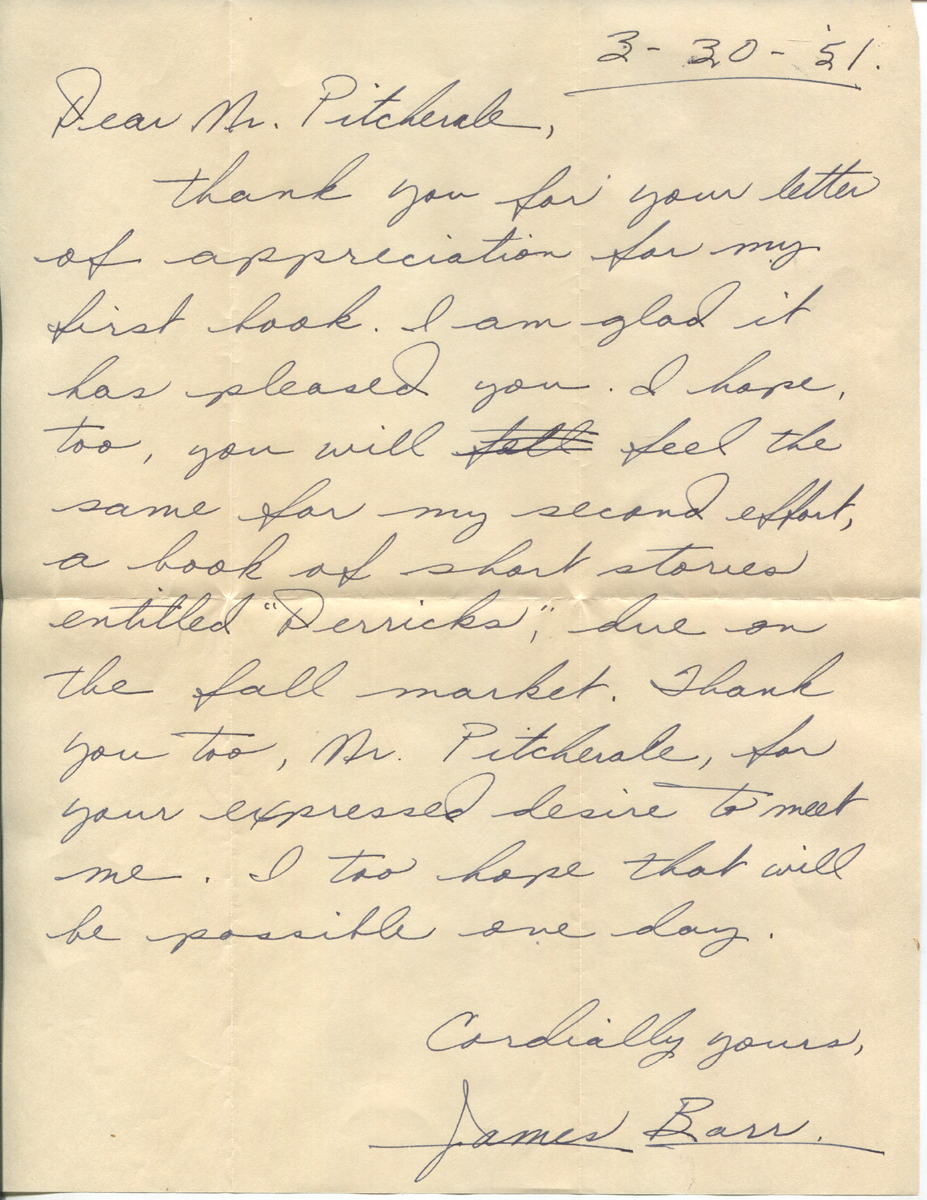 3-30-'51.
Dear Mr. Pitcherale,
thank you for your letter
of appreciation for my
first book. I am glad it
has pleased you. I hope,
too, you will fell feel the
same for my second effort,
a book of short stories
entitled "Derricks", due on
the fall market. Thank
you too, Mr. Pitcherale, for
your expressed desire to meet
me. I too hope that will
be possible one day.
Cordially yours,
James Barr.